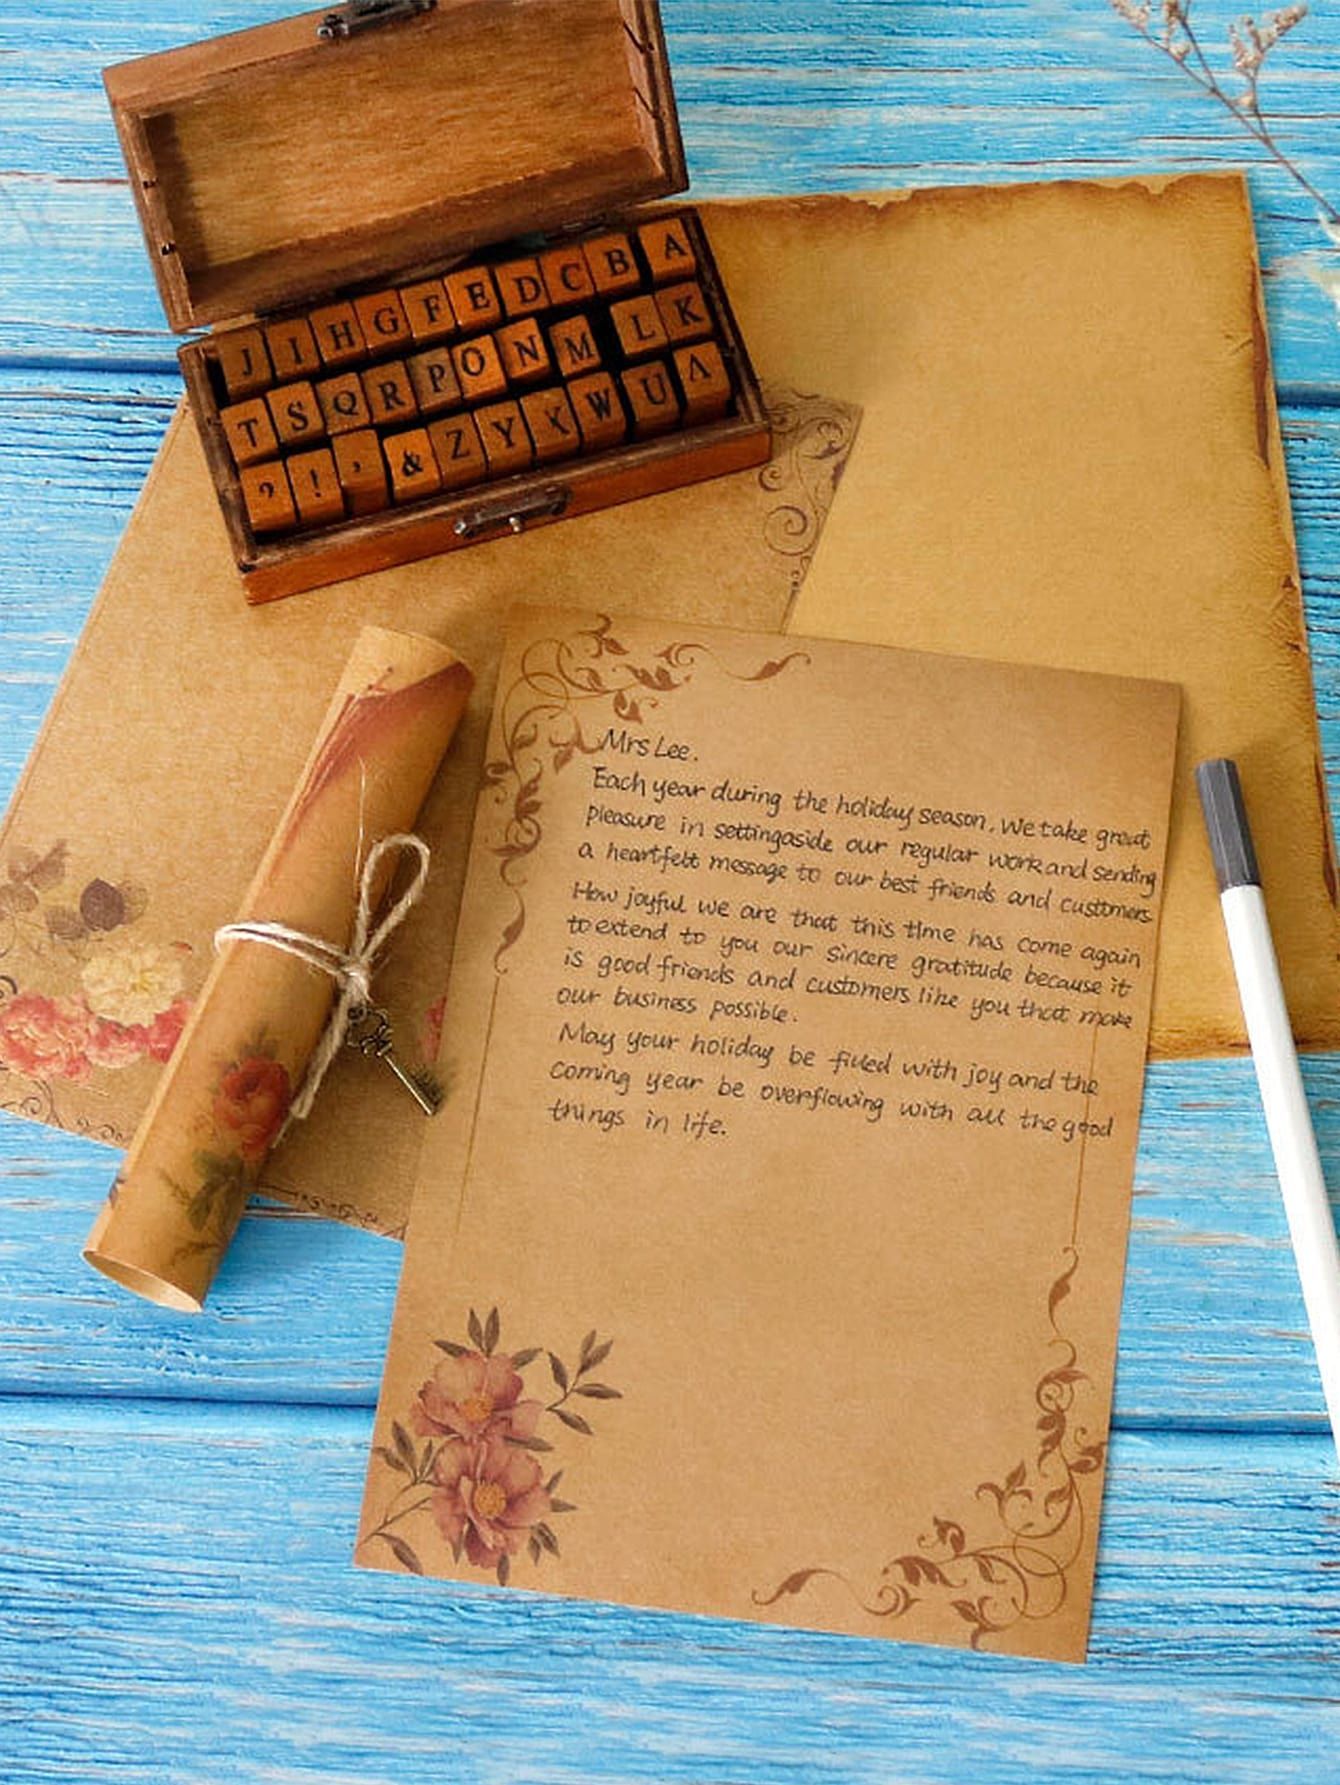 J I H G F E D C B A
T S Q R P O N M L K
? ! ' & Z Y X W U V
Mrs Lee.
Each year during the holiday season, we take great
pleasure in setting aside our regular work and sending
a heartfelt message to our best friends and customers
How joyful we are that this time has come again
to extend to you our sincere gratitude because it
is good friends and customers like you that make
our business possible.
May your holiday be filled with joy and the
coming year be overflowing with all the good
things in life.